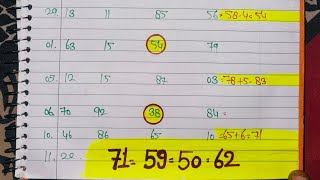 29. 13 11 85 56 = 58-4=54
01. 63 15 54 79
05. 12 15 87 03 = 78+5=83
06. 70 92 38 84 =
10. 46 86 65 10 = 65+6=71
11. 20
71= 59=50=62